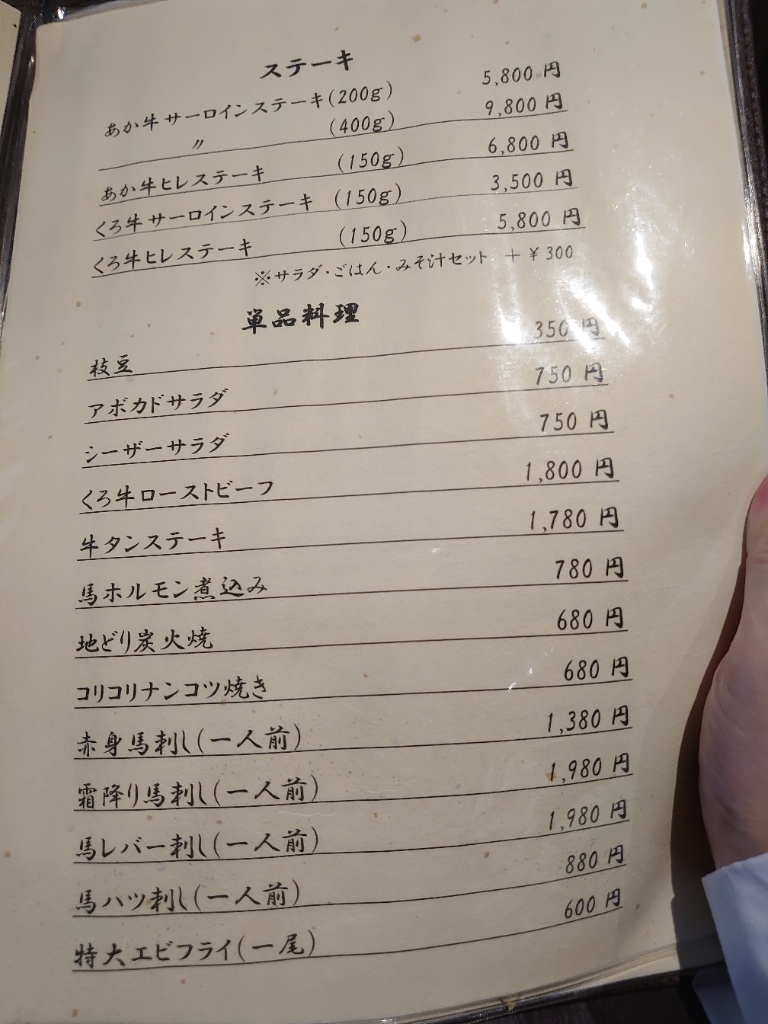 ステーキ
あか牛サーロインステーキ(200g) 5,800円
〃 (400g) 9,800円
あか牛ヒレステーキ (150g) 6,800円
くろ牛サーロインステーキ (150g) 3,500円
くろ牛ヒレステーキ (150g) 5,800円
※サラダ・ごはん・みそ汁セット +¥300
単品料理
枝豆 350円
アボカドサラダ 750円
シーザーサラダ 750円
くろ牛ローストビーフ 1,800円
牛タンステーキ 1,780円
馬ホルモン煮込み 780円
地どり炭火焼 680円
コリコリナンコツ焼き 680円
赤身馬刺し(一人前) 1,380円
霜降り馬刺し(一人前) 1,980円
馬レバー刺し(一人前) 1,980円
馬ハツ刺し(一人前) 880円
特大エビフライ(一尾) 600円